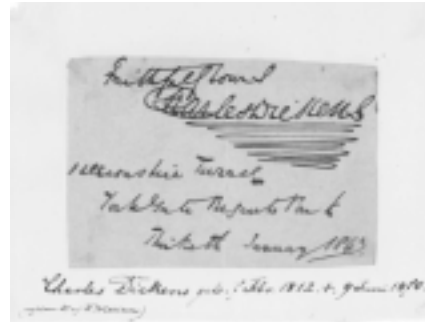 Faithfully Yours
Charles Dickens
Devonshire Terrace
York Gate Regents Park
Thirtieth January 1843
Charles Dickens geb. 7 Feb. 1812. †. 9 Juni 1870.